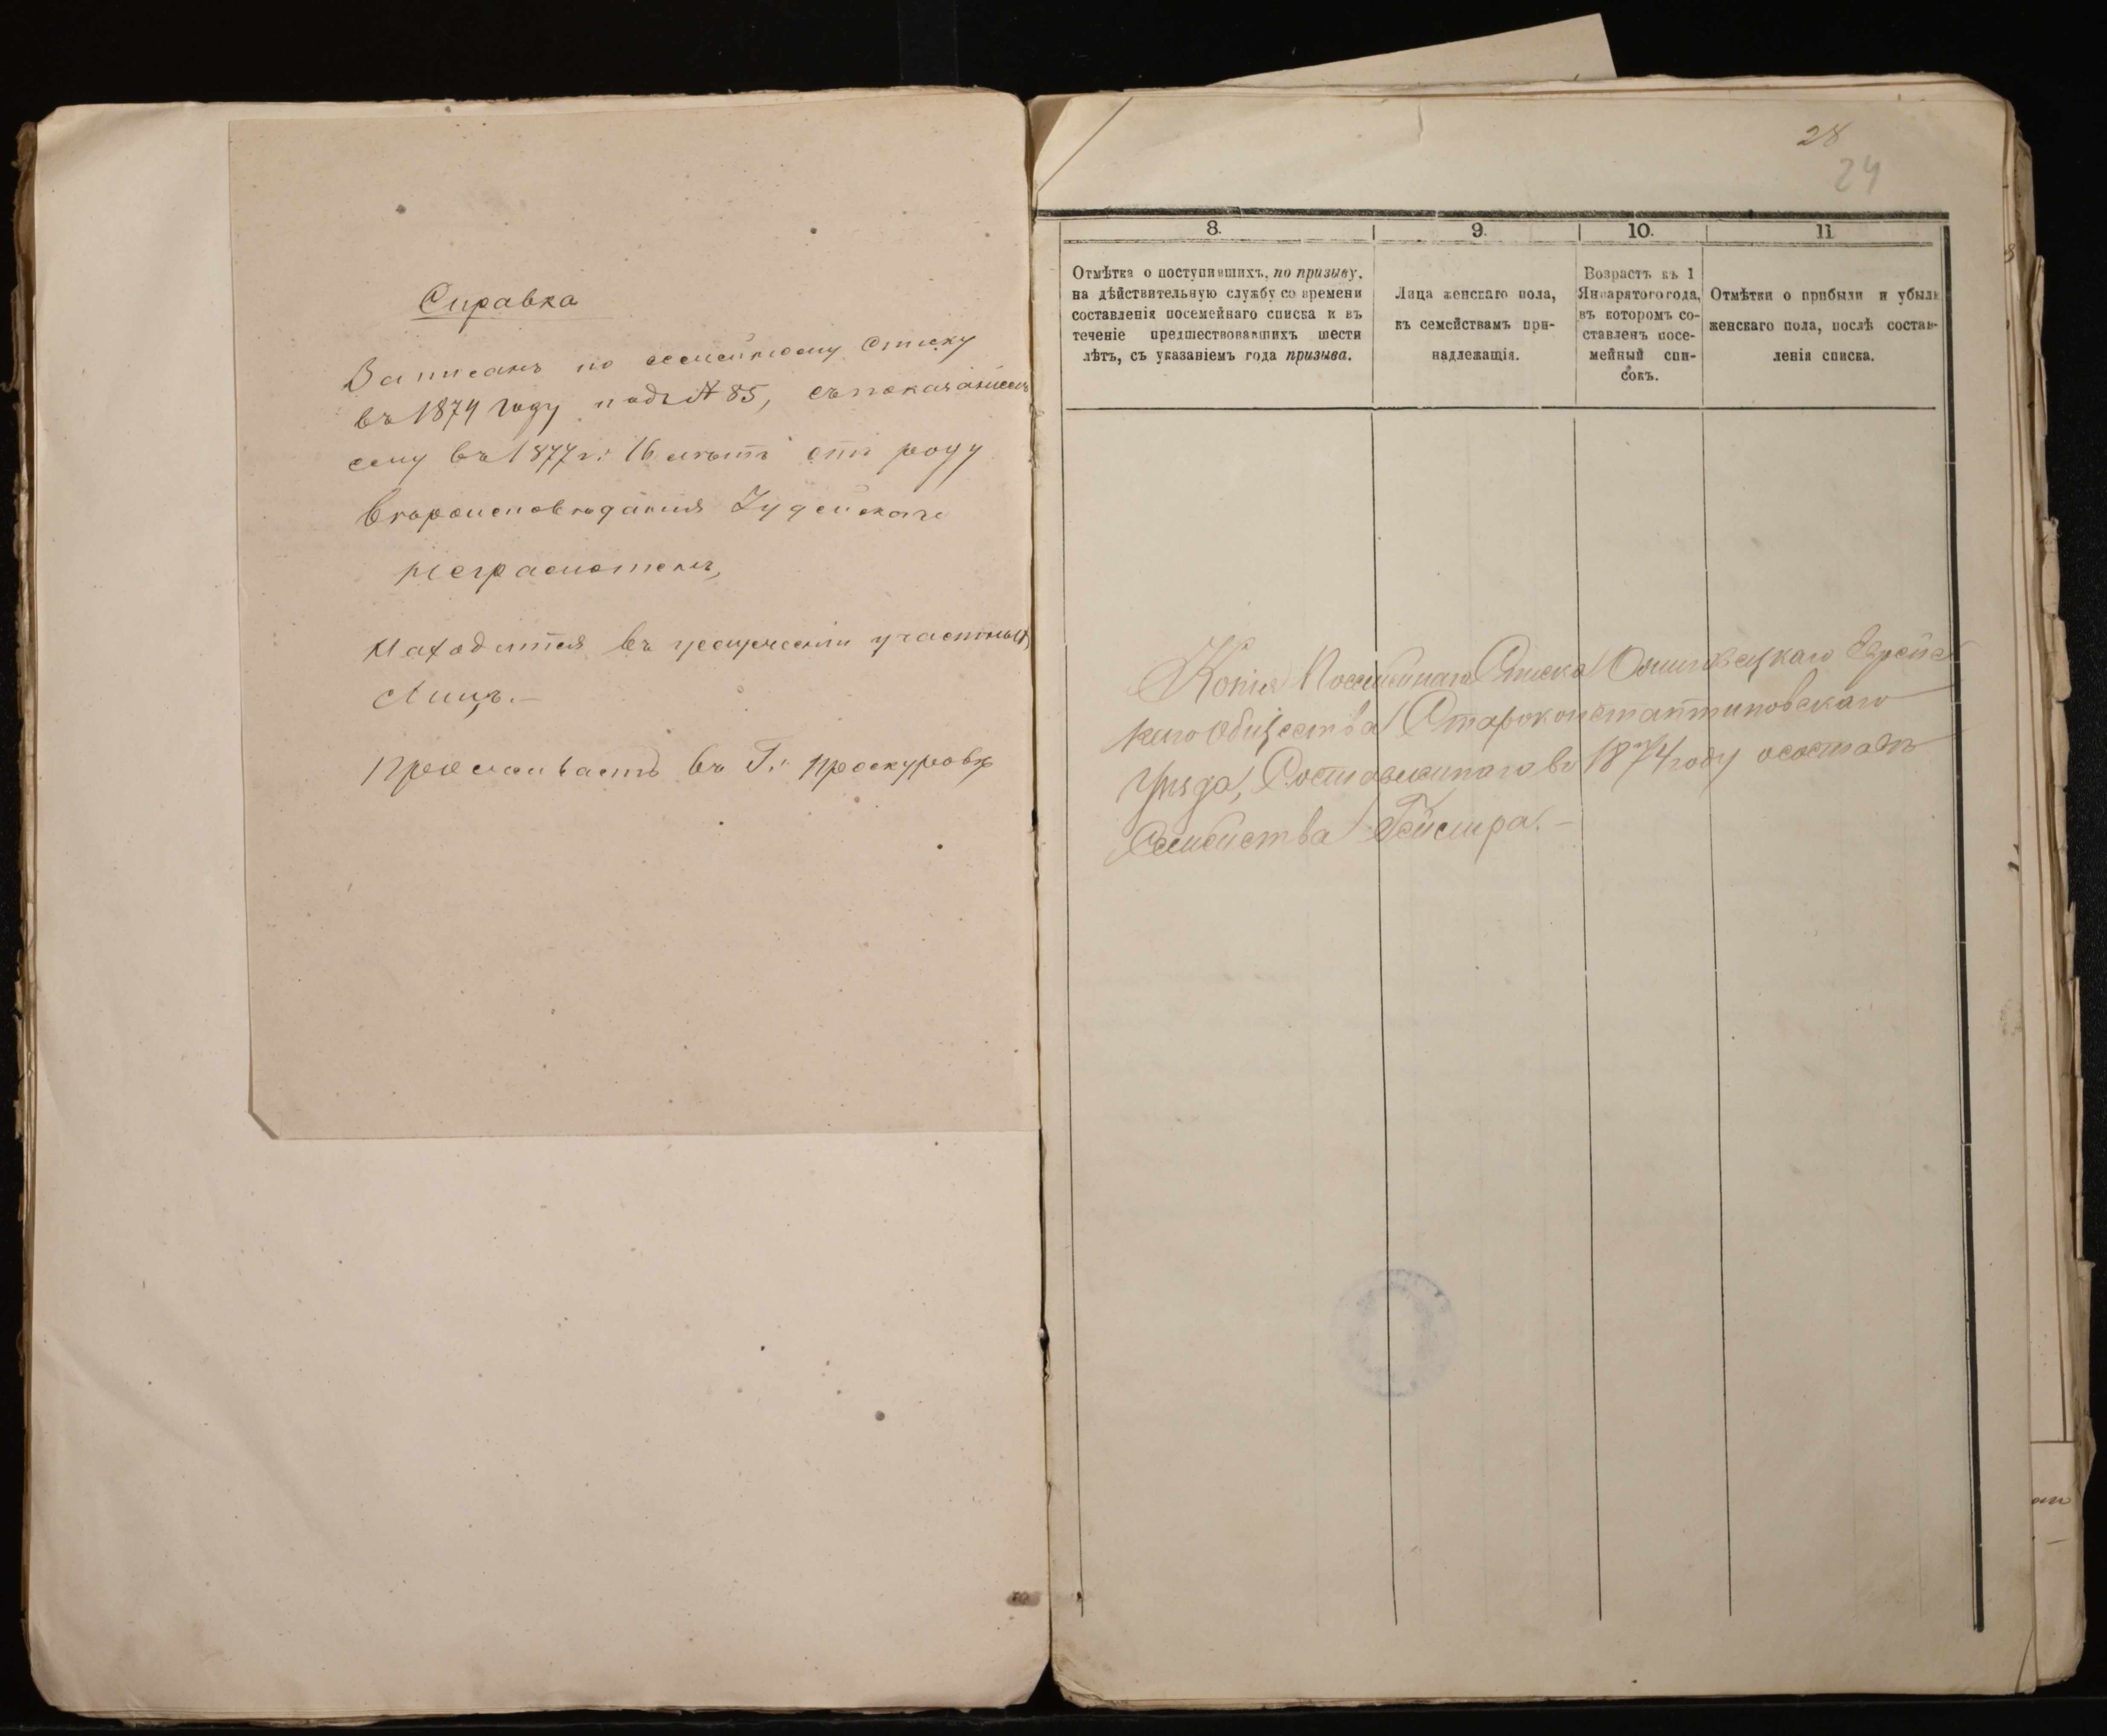 Справка
Записанъ по семейному списку
въ 1874 году подъ № 85, съ показаніемъ
ему въ 1877 г: 16 лѣтъ отъ роду
вѣроисповѣданія Іудейскаго
неграмотенъ,
Находится въ участных
Лицъ.—
Проживаетъ въ Г: Проскуровѣ
28
24
8.
9.
10.
11
Отмѣтка о поступившихъ, по призыву,
на дѣйствительную службу со времени
составленія посемейнаго списка и въ
теченіе предшествовавшихъ шести
лѣтъ, съ указаніемъ года призыва.
Лица женскаго пола,
къ семействамъ при-
надлежащія.
Возрастъ къ 1
Января того года,
въ которомъ со-
ставленъ посе-
мейный спи-
сокъ.
Отмѣтки о прибыли и убыли
женскаго пола, послѣ состав-
ленія списка.
Копія Посемейнаго Списка Еврейс
каго Общества Староконстантиновскаго
Уѣзда, Составленнаго въ 1874 году о составѣ
Семейства